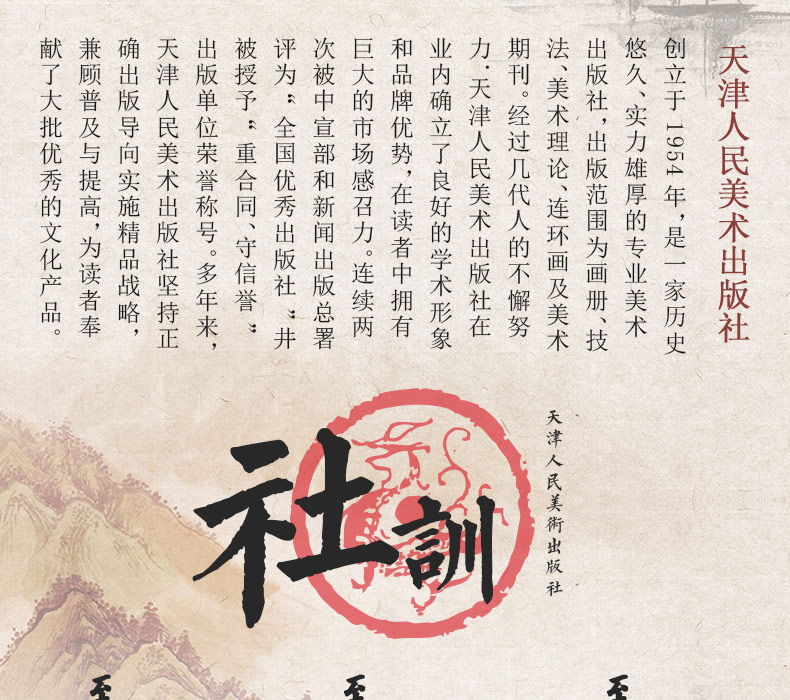 天津人民美术出版社
创立于 1954 年，是一家历史
悠久、实力雄厚的专业美术
出版社，出版范围为画册、技
法、美术理论、连环画及美术
期刊。经过几代人的不懈努
力·天津人民美术出版社在
业内确立了良好的学术形象
和品牌优势，在读者中拥有
巨大的市场感召力。连续两
次被中宣部和新闻出版总署
评为“全国优秀出版社”井
被授予“重合同、守信誉”
出版单位荣誉称号。多年来，
天津人民美术出版社坚持正
确出版导向实施精品战略，
兼顾普及与提高，为读者奉
献了大批优秀的文化产品。
天津人民美術出版社
社訓
至
至
至